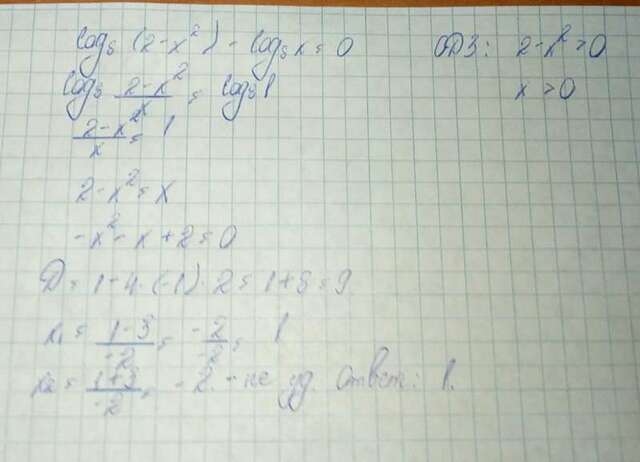 log₅ (2-x²) - log₅ x = 0 ОДЗ: 2-x²>0
log₅ (2-x²)/x = log₅ 1 x>0
(2-x²)/x = 1
2-x² = x
-x² - x + 2 = 0
D = 1-4·(-1)·2 = 1+8 = 9
x₁ = (1-3)/-2 = -2/-2 = 1
x₂ = (1+3)/-2 = -2 - не уд. Ответ: 1.